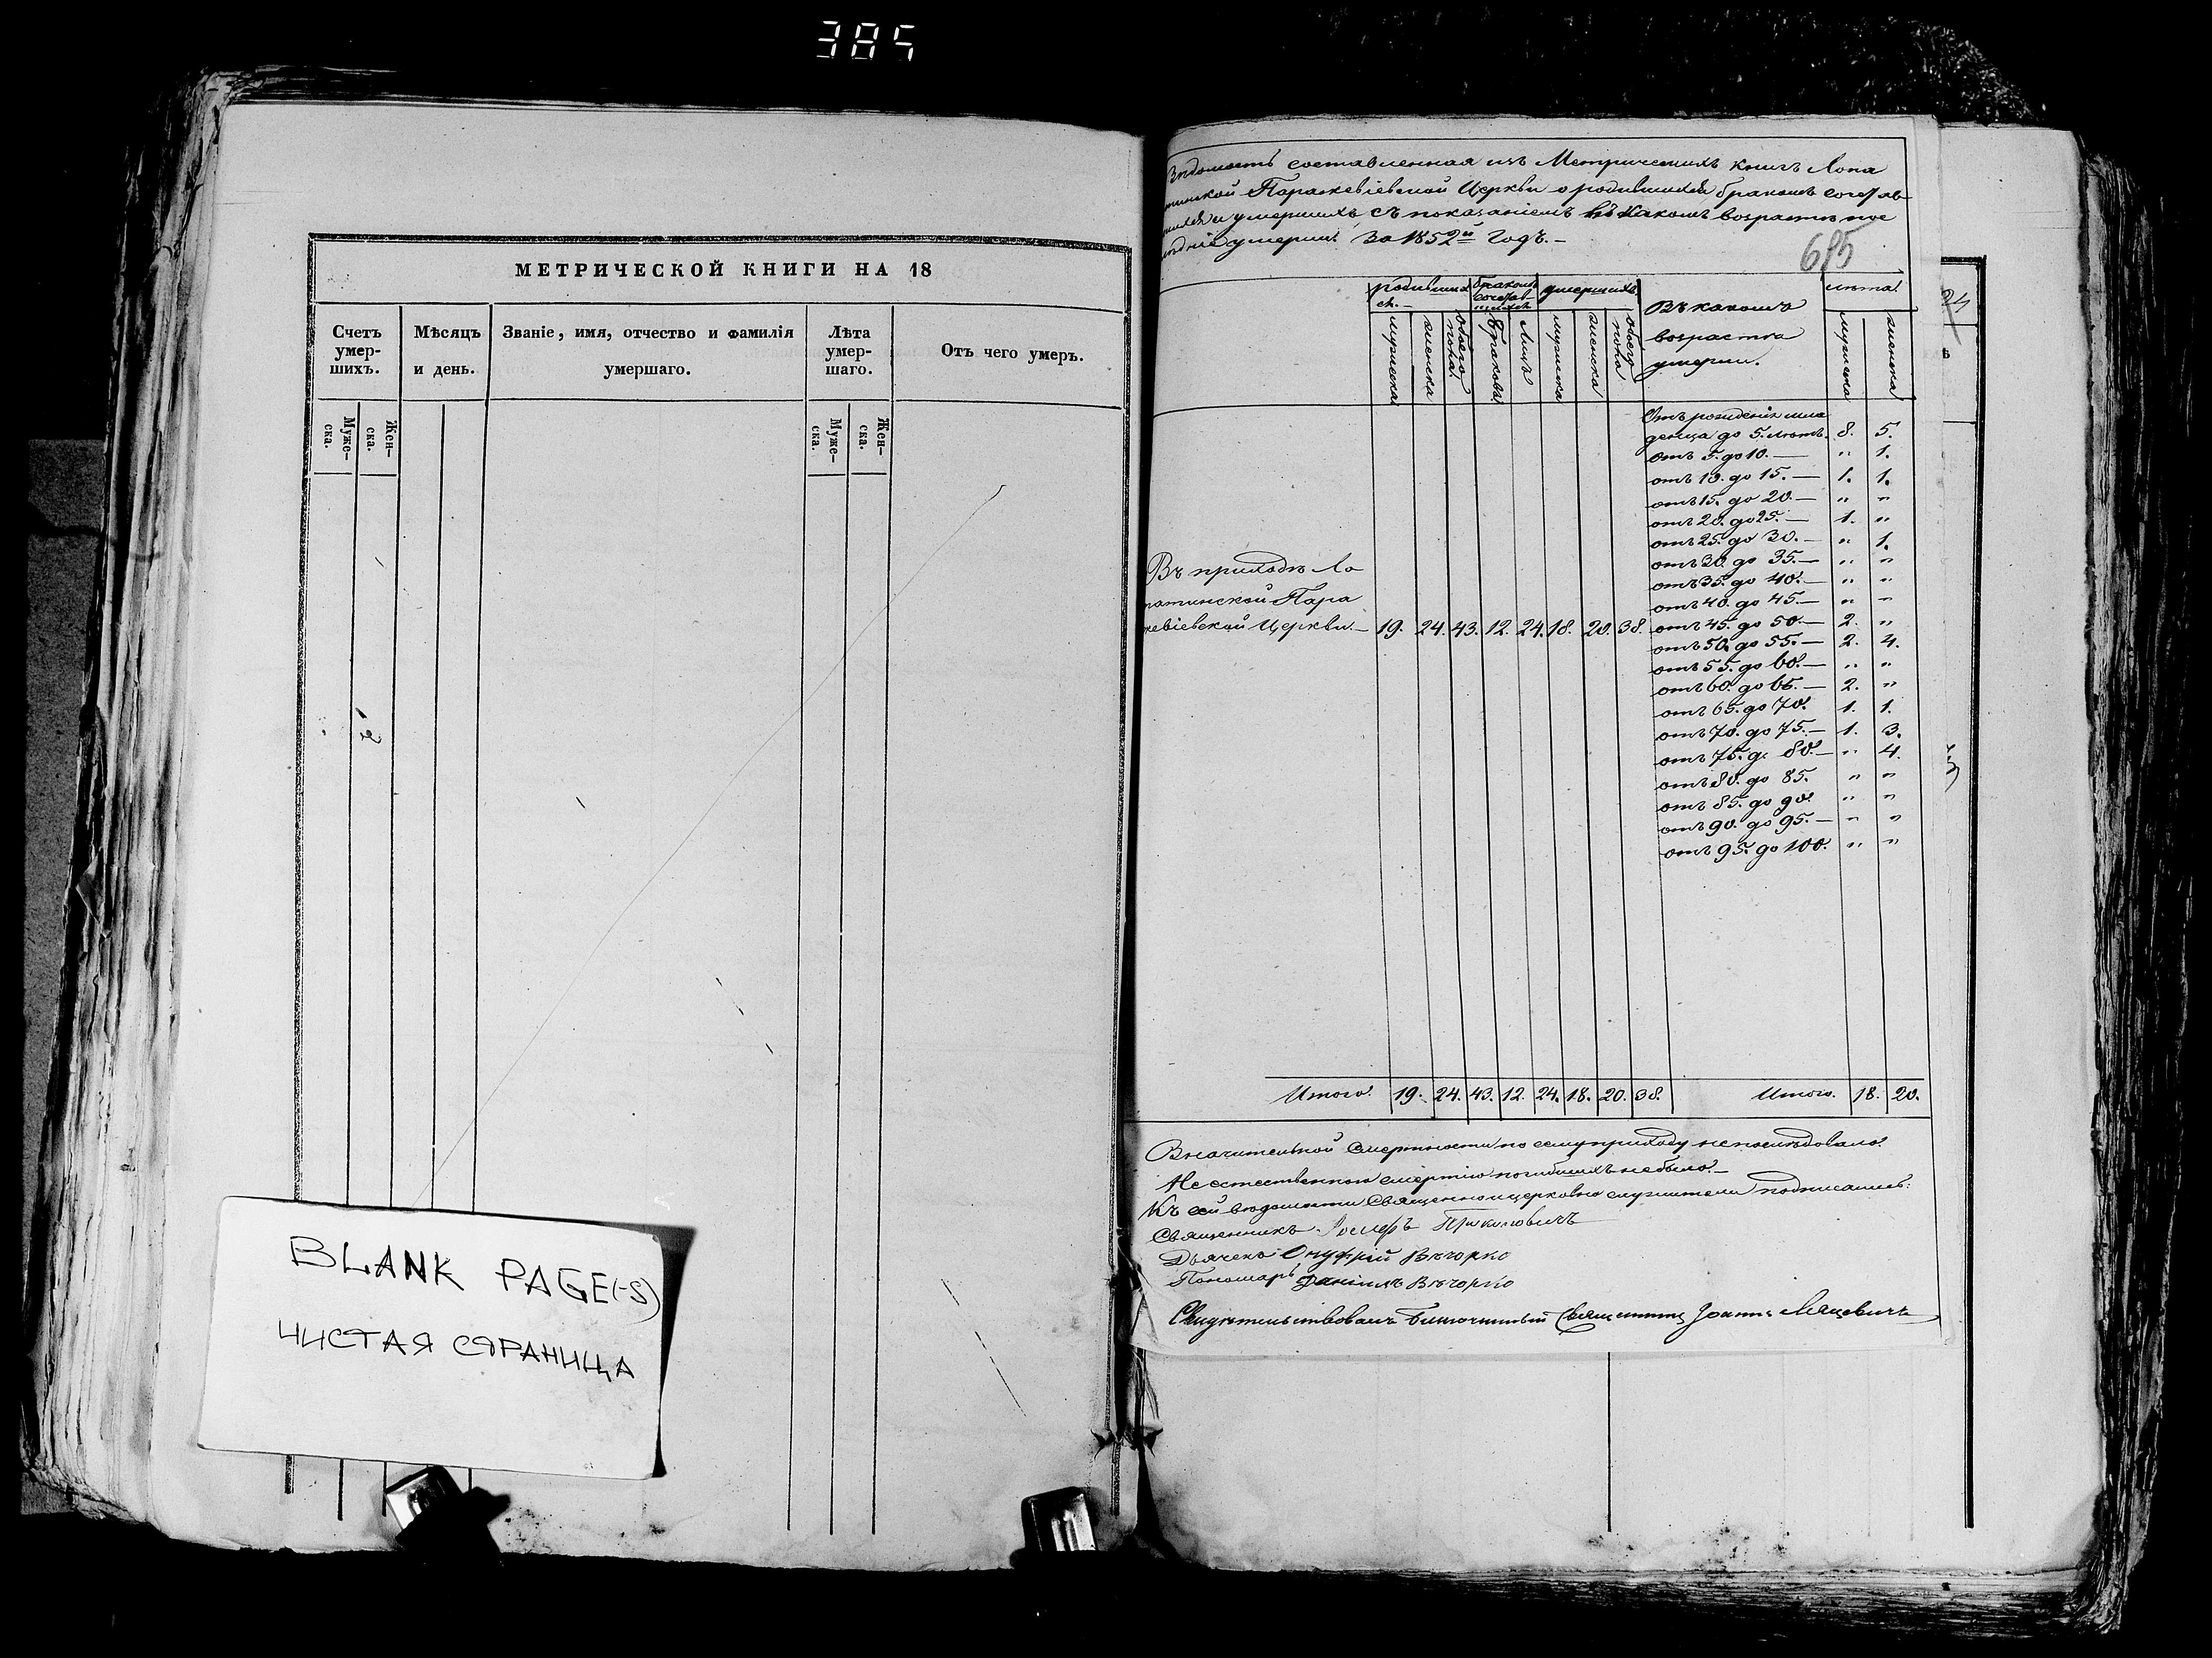 385
МЕТРИЧЕСКОЙ КНИГИ НА 18
Счетъ умер-шихъ.
Мѣсяцъ и день.
Званіе, имя, отчество и фамилія умершаго.
Лѣта умер-шаго.
Отъ чего умеръ.
Муже-ска.
Жен-ска.
Муже-ска.
Жен-ска.
BLANK PAGE(-S)
ЧИСТАЯ СТРАНИЦА
Вѣдомость составленная изъ Метрическихъ книгъ Лопа
тинской Параскевіевской Церкви о родившихся бракомъ сочетав-
шихся и умершихъ съ показаніемъ въ какомъ возрастѣ пос
лѣдніе умерли. За 1852й Годъ. —
695
родивших ся. —
бракомъ сочетав-шихся
умершихъ.
Въ какомъ возрастѣ умерли.
лѣта.
24
мужеска
женска
обоего пола.
Браковъ.
Лицъ
мужеска
женска
обоего пола
мужеска
женска
Отъ рожденія мла
денца до 5. лѣтъ. 8. 5.
отъ 5. до 10. — " 1.
отъ 10. до 15. — 1. 1.
отъ 15. до 20. — " "
отъ 20. до 25. — 1. "
отъ 25. до 30. — " 1.
отъ 30. до 35. — " "
отъ 35. до 40. — " "
отъ 40. до 45. — " "
отъ 45. до 50. — 2. "
отъ 50. до 55. — 2. 4.
отъ 55. до 60. — " "
отъ 60. до 65. — 2. "
отъ 65. до 70. 1. 1.
отъ 70. до 75. — 1. 3.
отъ 75. до 80. — " 4.
отъ 80. до 85. " "
отъ 85. до 90. " "
отъ 90. до 95. — " "
отъ 95. до 100. " "
Въ приходѣ Ло
патинской Пара
кевіевской Церкви. — 19. 24. 43. 12. 24. 18. 20. 38.
Итого. 19. 24. 43. 12. 24. 18. 20. 38. Итого. 18. 20.
Значительной смертности по сему приходу не послѣдовало.
Не естественною смертію погибшихъ не было. —
Къ сей вѣдомости Священно и церковно служители подписались:
Священникъ Іосифъ
Дьячекъ Онуфрій Вѣчорко
Пономарь Даніилъ Вѣчорко
Свидѣтельствовалъ Благочинный Священникъ Іоаннъ Ляцевичъ